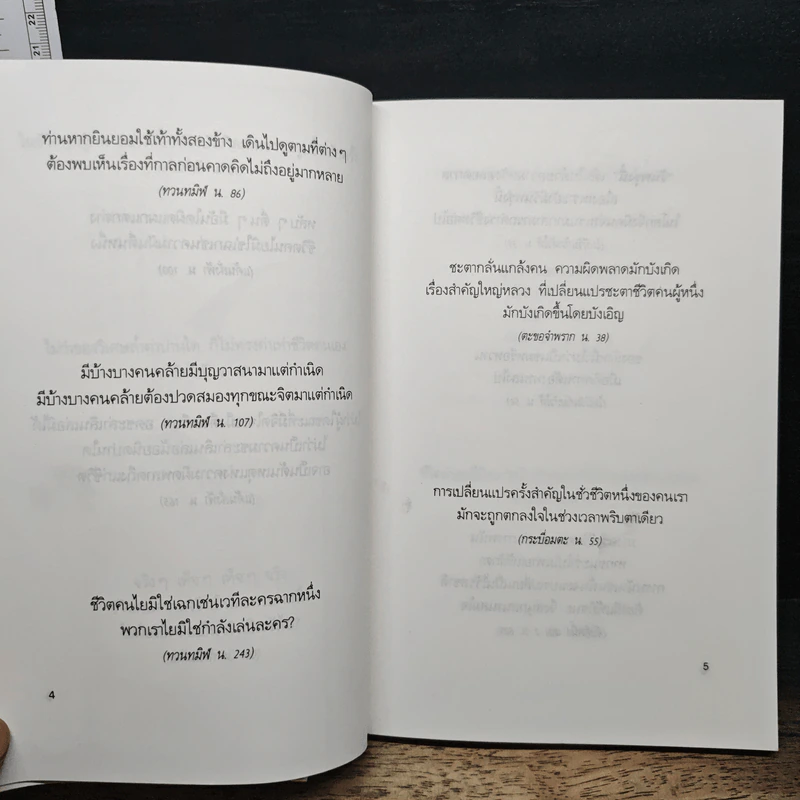 22
21
ท่านหากยินยอมใช้เท้าทั้งสองข้าง เดินไปดูตามที่ต่าง ๆ
ต้องพบเห็นเรื่องที่กาลก่อนคาดคิดไม่ถึงอยู่มากหลาย
(ทวนทมิฬ น. 86)
มีบ้างบางคนคล้ายมีบุญวาสนามาแต่กำเนิด
มีบ้างบางคนคล้ายต้องปวดสมองทุกขณะจิตมาแต่กำเนิด
(ทวนทมิฬ น. 107)
ชีวิตคนไยมิใช่เฉกเช่นเวทีละครฉากหนึ่ง
พวกเราไยมิใช่กำลังเล่นละคร?
(ทวนทมิฬ น. 243)
4
ชะตากลั่นแกล้งคน ความผิดพลาดมักบังเกิด
เรื่องสำคัญใหญ่หลวง ที่เปลี่ยนแปรชะตาชีวิตคนผู้หนึ่ง
มักบังเกิดขึ้นโดยบังเอิญ
(ตะขอจำพราก น. 38)
การเปลี่ยนแปรครั้งสำคัญในชั่วชีวิตหนึ่งของคนเรา
มักจะถูกตกลงใจในช่วงเวลาพริบตาเดียว
(กระบี่อมตะ น. 55)
5